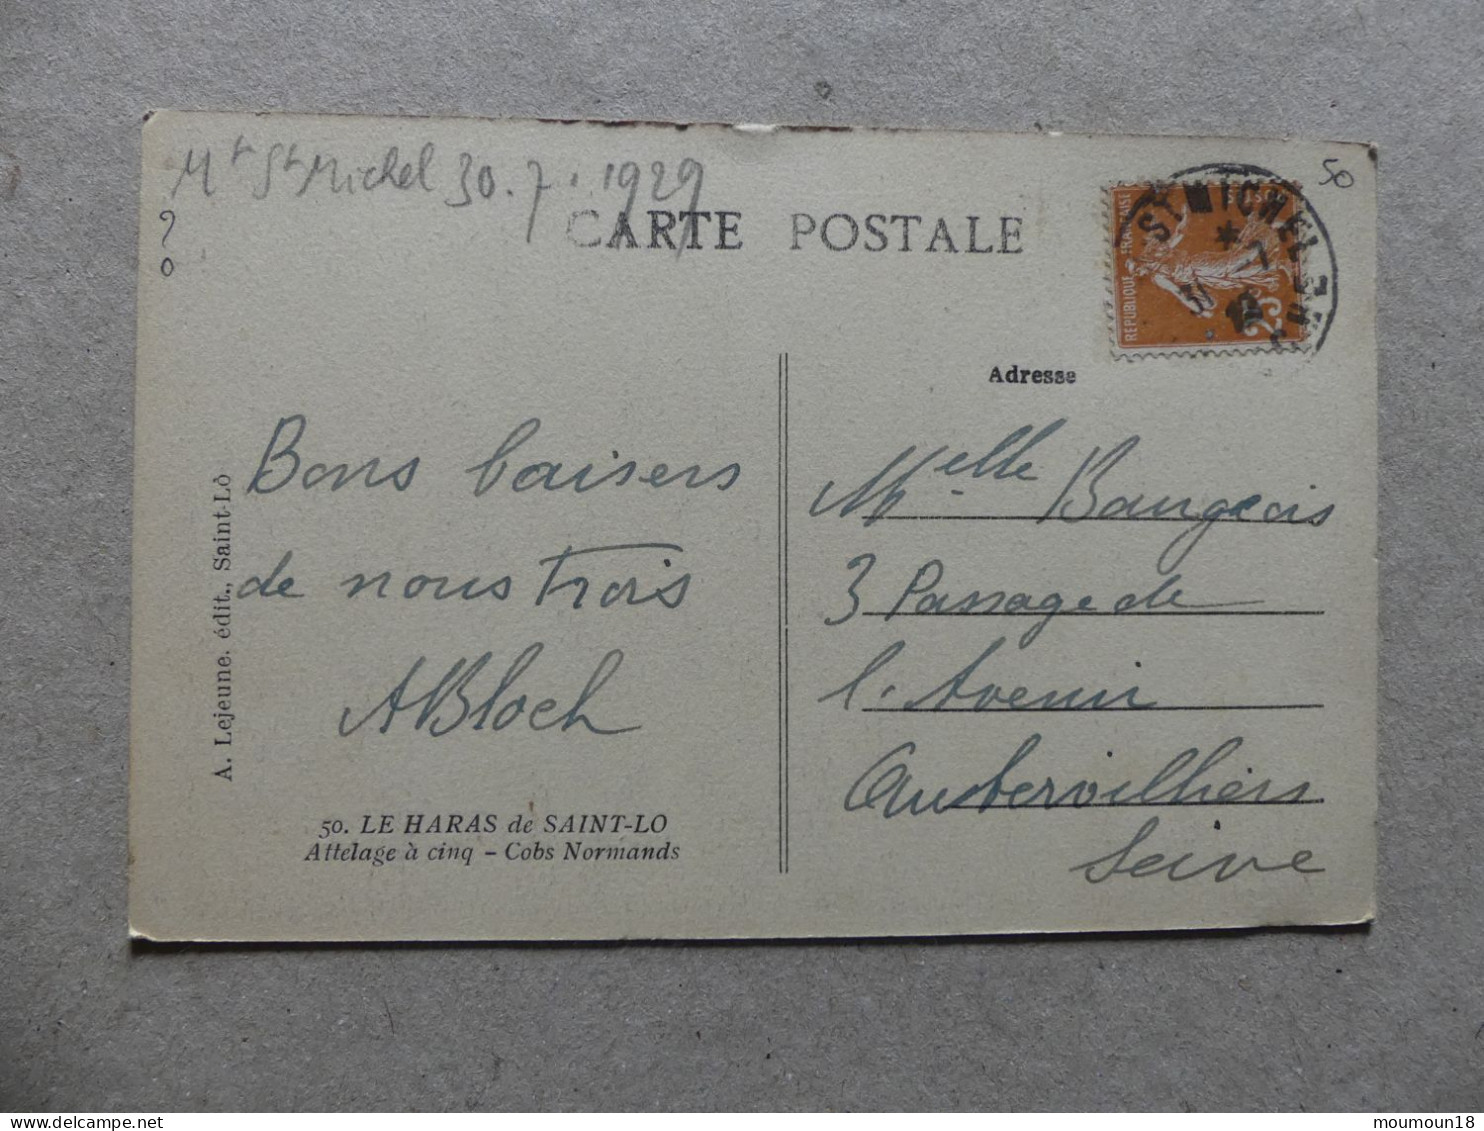 Mt St Michel 30.7.1929
50
? o
CARTE POSTALE
ST MICHEL
* 7
31
RÉPUBLIQUE FRANÇAISE
25
Adresse
Bons baisers
de nous trois
ABloch
Melle Baugeois
3 Passage de
l'Avenir
Aubervilliers
Seine
A. Lejeune, édit., Saint-Lô
50. LE HARAS de SAINT-LO
Attelage à cinq – Cobs Normands
moumoun18